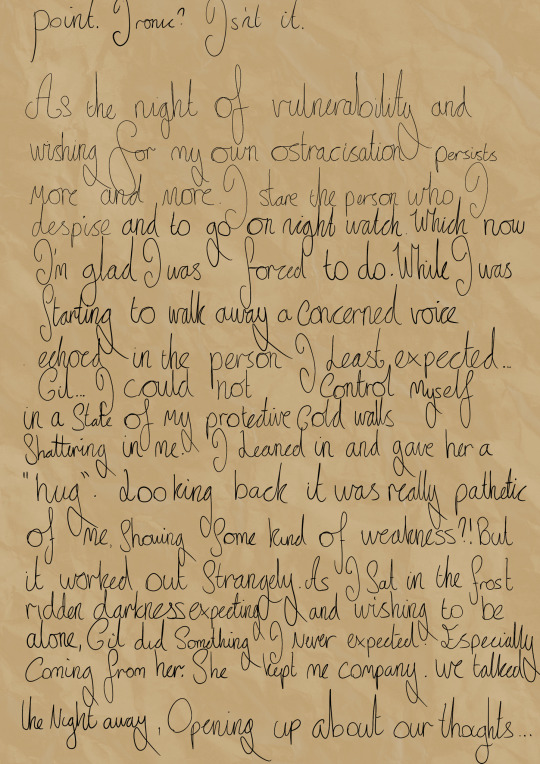 point. Ironic? Isn't it.
As the night of vulnerability and
wishing for my own ostracisation persists
More and more. I stare the person who I
despise and to go on night watch. Which now
I'm glad I was forced to do. While I was
Starting to walk away a concerned voice
echoed in the person I Least expected...
Gil... I could not Control Myself
in a State of my protective Cold walls
Shattering in me. I Leaned in and gave her a
"hug". Looking back it was really pathetic
of me, Showing Some kind of weakness?! But
it worked out Strangely. As I Sat in the frost
ridden darkness expecting and wishing to be
alone, Gil did Something I Never expected. Especially
Coming from her. She kept me company. we talked
the Night away, Opening up about our thoghts...